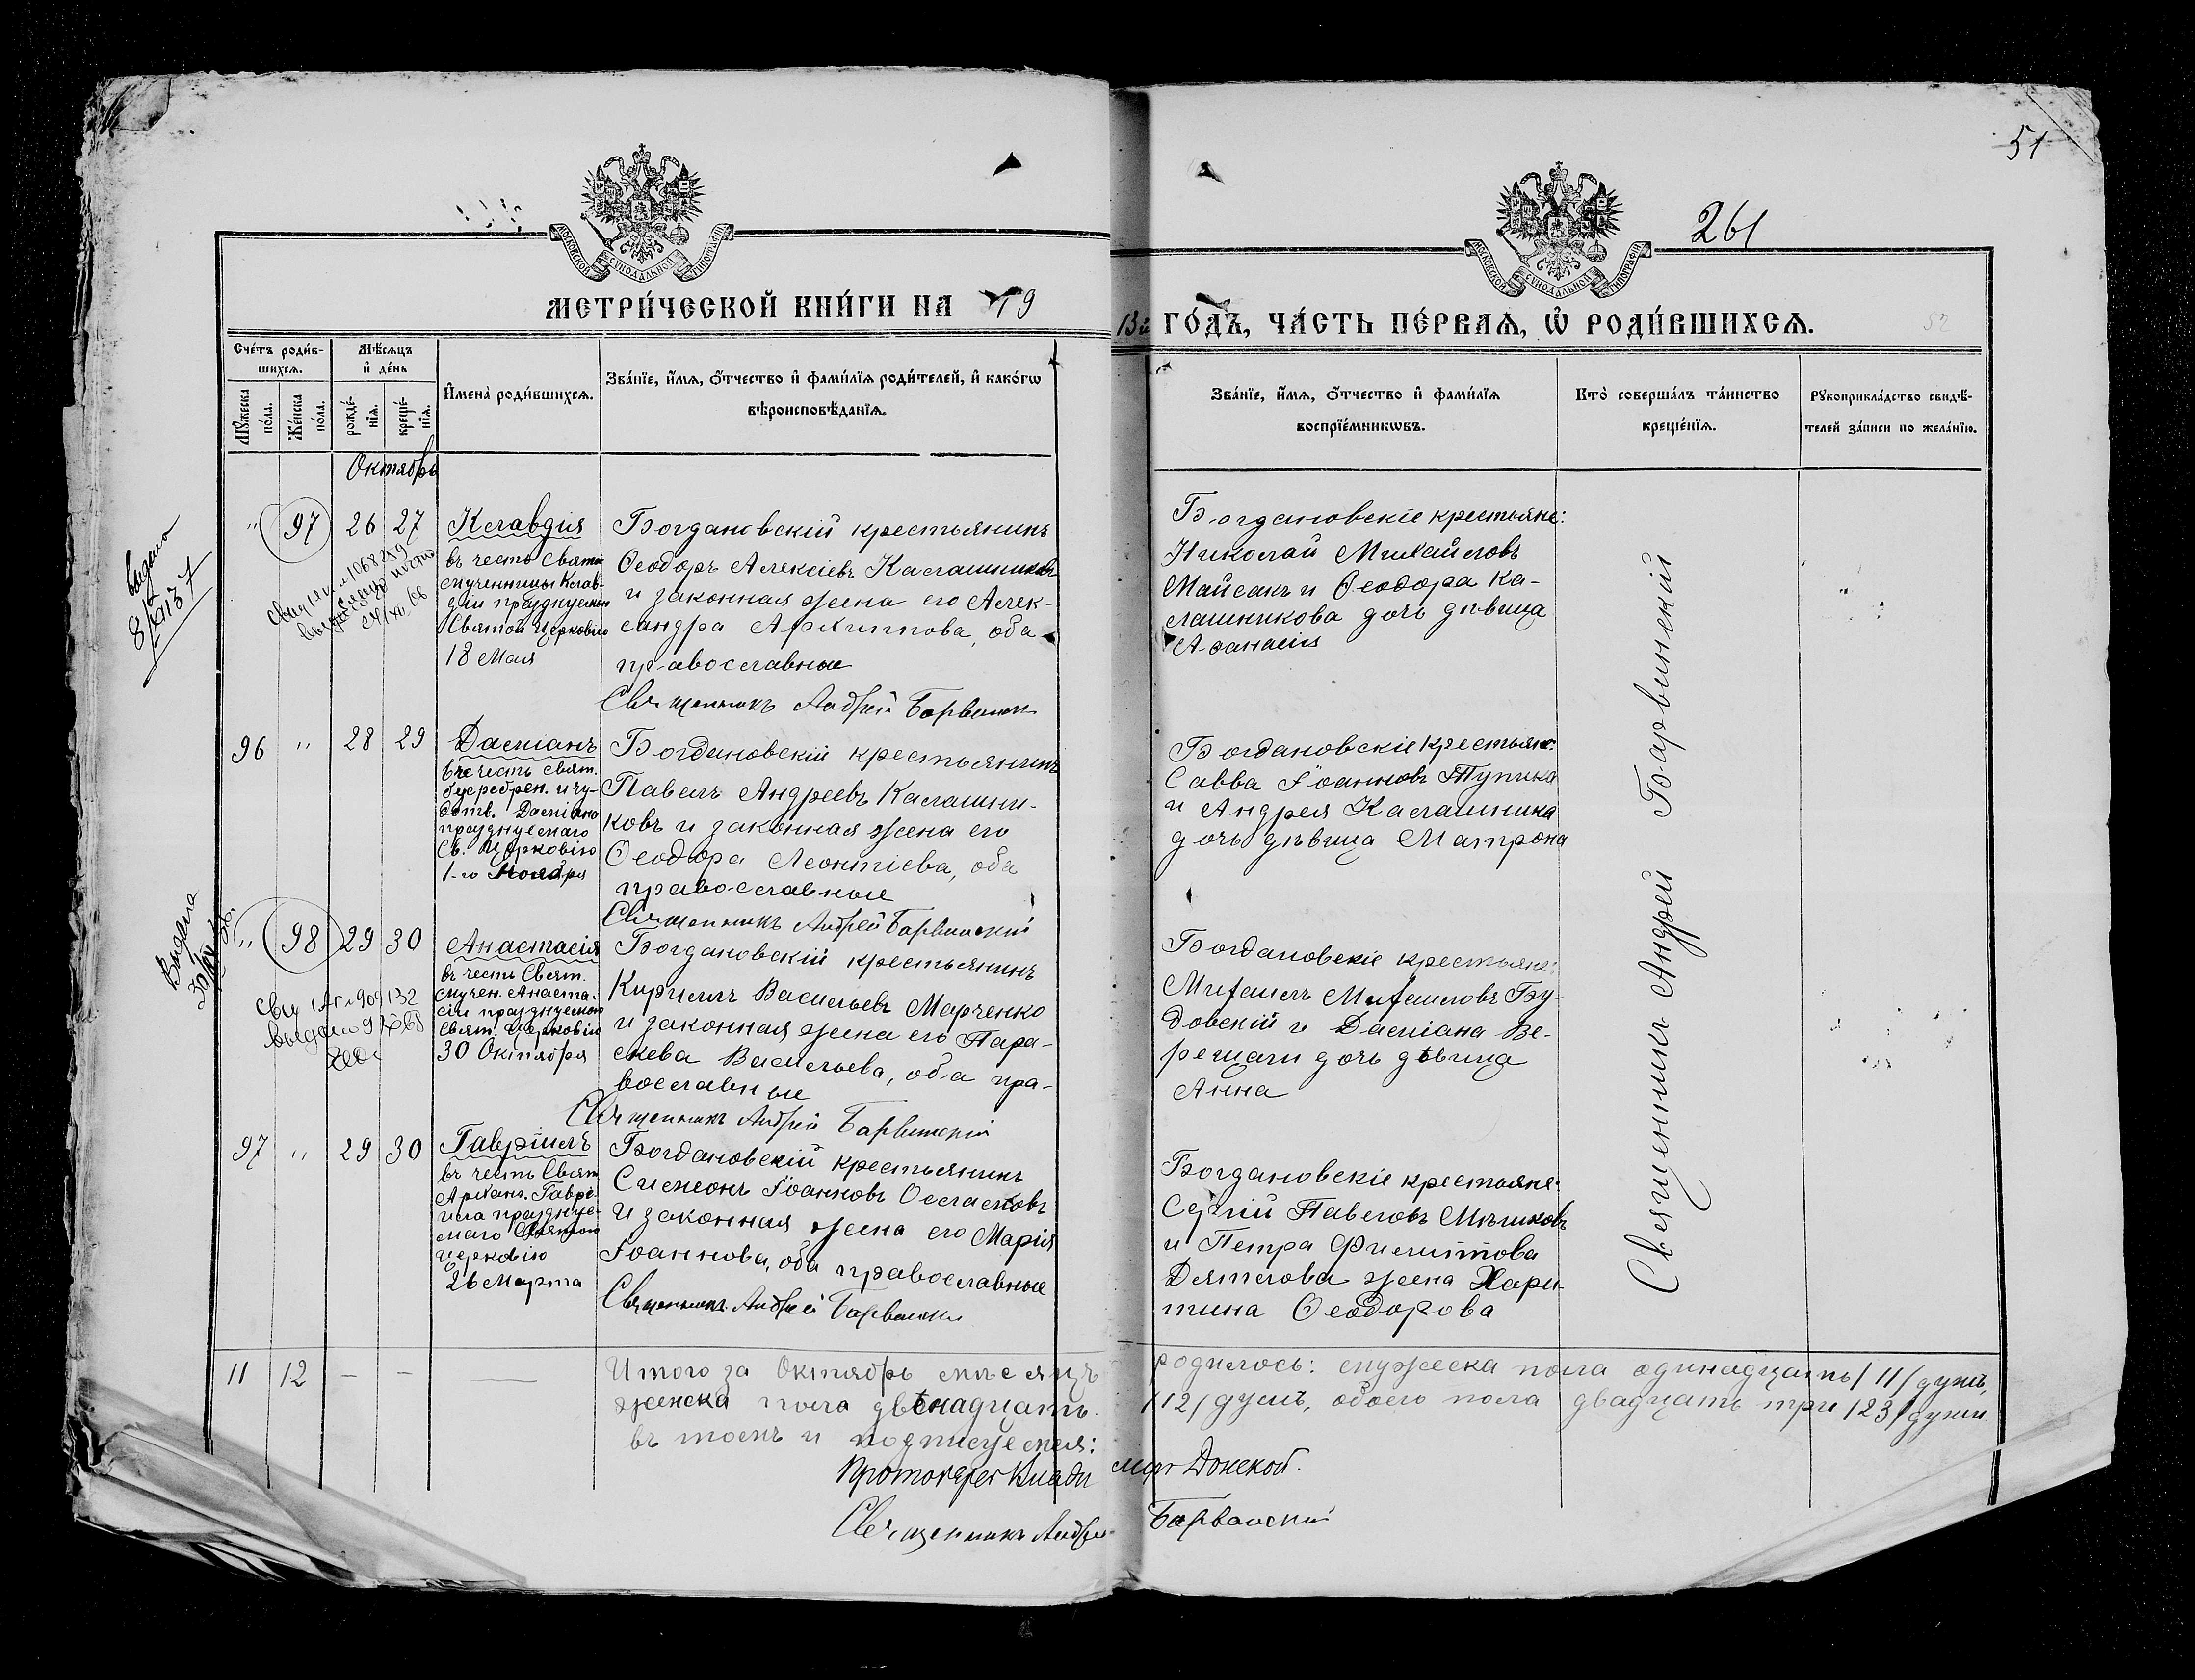 51
261
МОСКОВСКОЙ СѴНОДАЛЬНОЙ ТИПОГРАФІИ
МОСКОВСКОЙ СѴНОДАЛЬНОЙ ТИПОГРАФІИ
МЕТРИ́ЧЕСКОЙ КНИ́ГИ НА 19
13й ГО́ДЪ, ЧА́СТЬ ПЕ́РВАѦ, Ѡ҆ РОДИ́ВШИХСѦ.
52
Сче́тъ роди́в-
шихсѧ.
Мꙋ́жеска по́ла.
Же́нска по́ла.
Мѣ́сѧцъ
и҆ де́нь
рожде́-
нїѧ.
креще́-
нїѧ.
И҆мена̀ роди́вшихсѧ.
Зва́нїе, и҆́мѧ, ѻ҆́тчество и҆ фами́лїѧ роди́телей, и҆ како́гѡ
вѣроисповѣ́данїѧ.
Зва́нїе, и҆́мѧ, ѻ҆́тчество и҆ фами́лїѧ
воспрїе́мникѡвъ.
Кто̀ соверша́лъ та́инство
креще́нїѧ.
Рꙋкоприкла́дство свидѣ́-
телей за́писи по жела́нїю.
Октябрь
" 97 26 27
Клавдія
въ честь Святой
мученницы Клав-
діи празднуемой
Святой Церковію
18 Мая
Богдановскій крестьянинъ
Ѳеодоръ Алексіевъ Калашниковъ
и законная жена его Алек-
сандра Архиппова, оба
православные
Священникъ Андрей Барвинскій
Богдановскіе крестьяне:
Николай Михайловъ
Майсакъ и Ѳеодора Ка-
лашникова дочь дѣвица
Аѳанасія
выдано
96 " 28 29
Даміанъ
въ честь свят.
безсребрен. и чу-
дотв. Даміана
празднуемаго
Св. Церковію
1-го Ноября
Богдановскій крестьянинъ
Павелъ Андреевъ Калашни-
ковъ и законная жена его
Ѳеодора Леонтіева, оба
православные
Священникъ Андрей Барвинскій
Богдановскіе крестьяне:
Савва Іоанновъ Тупика
и Андрея Калашника
дочь дѣвица Матрона
Выдана
" 98 29 30
Анастасія
въ честь Свят.
мучен. Анаста-
сіи празднуемой
Свят. Церковію
30 Октября
Богдановскій крестьянинъ
Кириллъ Васильевъ Марченко
и законная жена его Пара-
скева Васильева, оба пра-
вославные
Священникъ Андрей Барвинскій
Богдановскіе крестьяне:
Михаилъ Михаиловъ Бу-
довскій и Даміана Ве-
рещаги дочь дѣвица
Анна
97 " 29 30
Гавріилъ
въ честь Свят.
Архан. Гаврі-
ила праздуе-
маго Святою
Церковію
26 Марта
Богдановскій крестьянинъ
Симеонъ Іоанновъ
и законная жена его Марія
Іоаннова, оба православные
Священникъ Андрей Барвинскій
Богдановскіе крестьяне:
Сергій Павловъ Мѣшковъ
и Петра Филиппова
Дятлова жена Хари-
тина Ѳеодорова
Священникъ Андрей Барвинскій
11 12 — — —
Итого за Октябрь мѣсяцъ родилось: мужеска пола одинадцать /11/ душъ,
женска пола двѣнадцать /12/ душъ, обоего пола двадцать три /23/ души
въ томъ и подписуемся:
Протоіерей Владиміръ Донской.
Священникъ Андрей Барвинскій